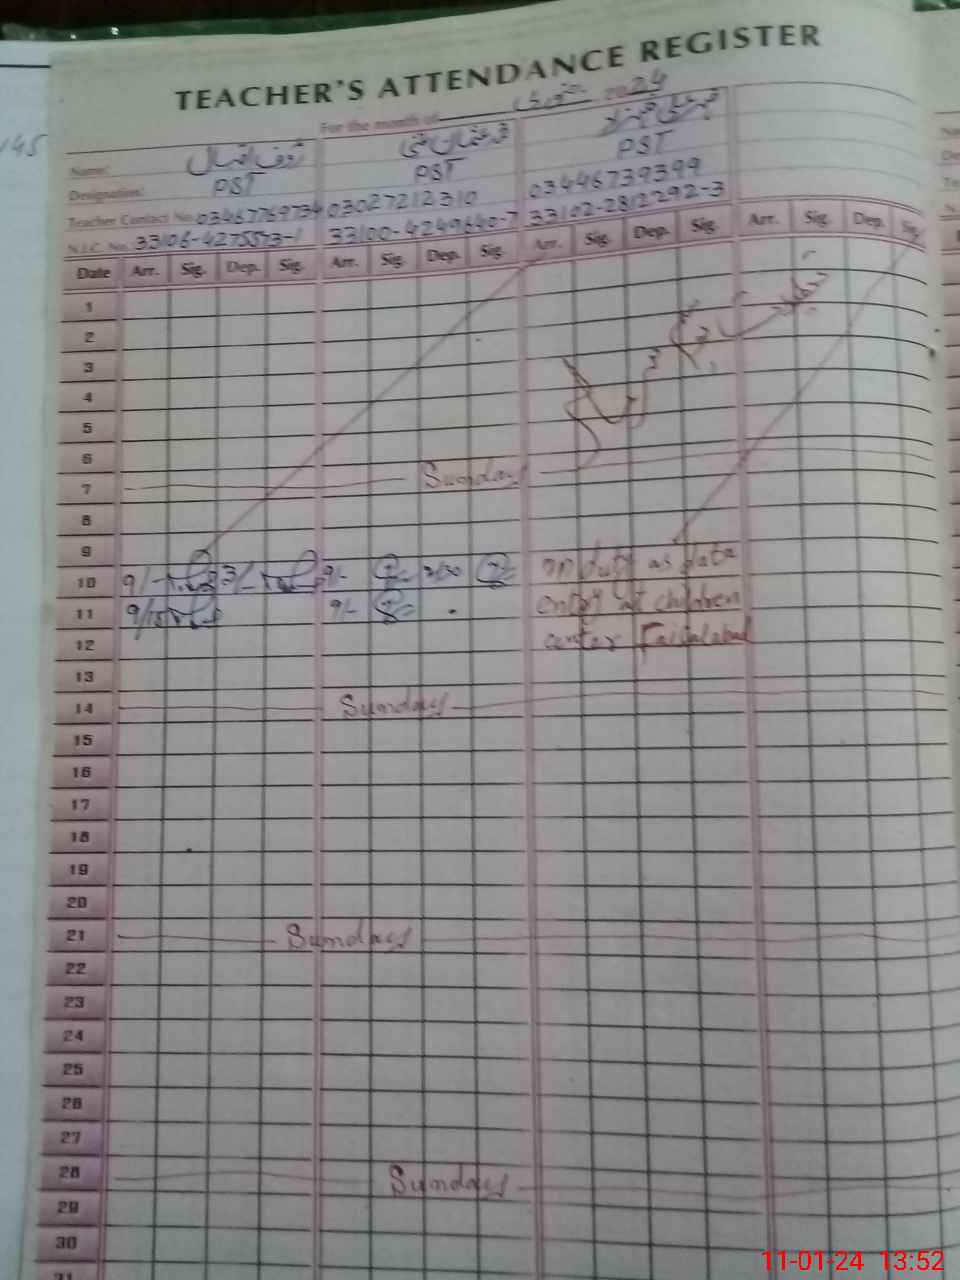 TEACHER'S ATTENDANCE REGISTER
145
For the month of جنوری 2024
Name:
Designation: PST PST PST
Teacher Contact No. 03467769734 03027212310 03446739399
N.I.C. No. 33106-4275573-1 33100-4249640-7 33102-2812292-3
Date Arr. Sig. Dep. Sig. Arr. Sig. Dep. Sig. Arr. Sig. Dep. Sig. Arr. Sig. Dep. Sig.
1
2
3
4
5
6
7 Sunday
8
9
10 9/- 3/- 9/- 2/30 on duty as data
11 9/15 9/- entry at children
12 center Faisalabad
13
14 Sunday
15
16
17
18
19
20
21 Sunday
22
23
24
25
26
27
28 Sunday
29
30
31
11-01-24 13:52